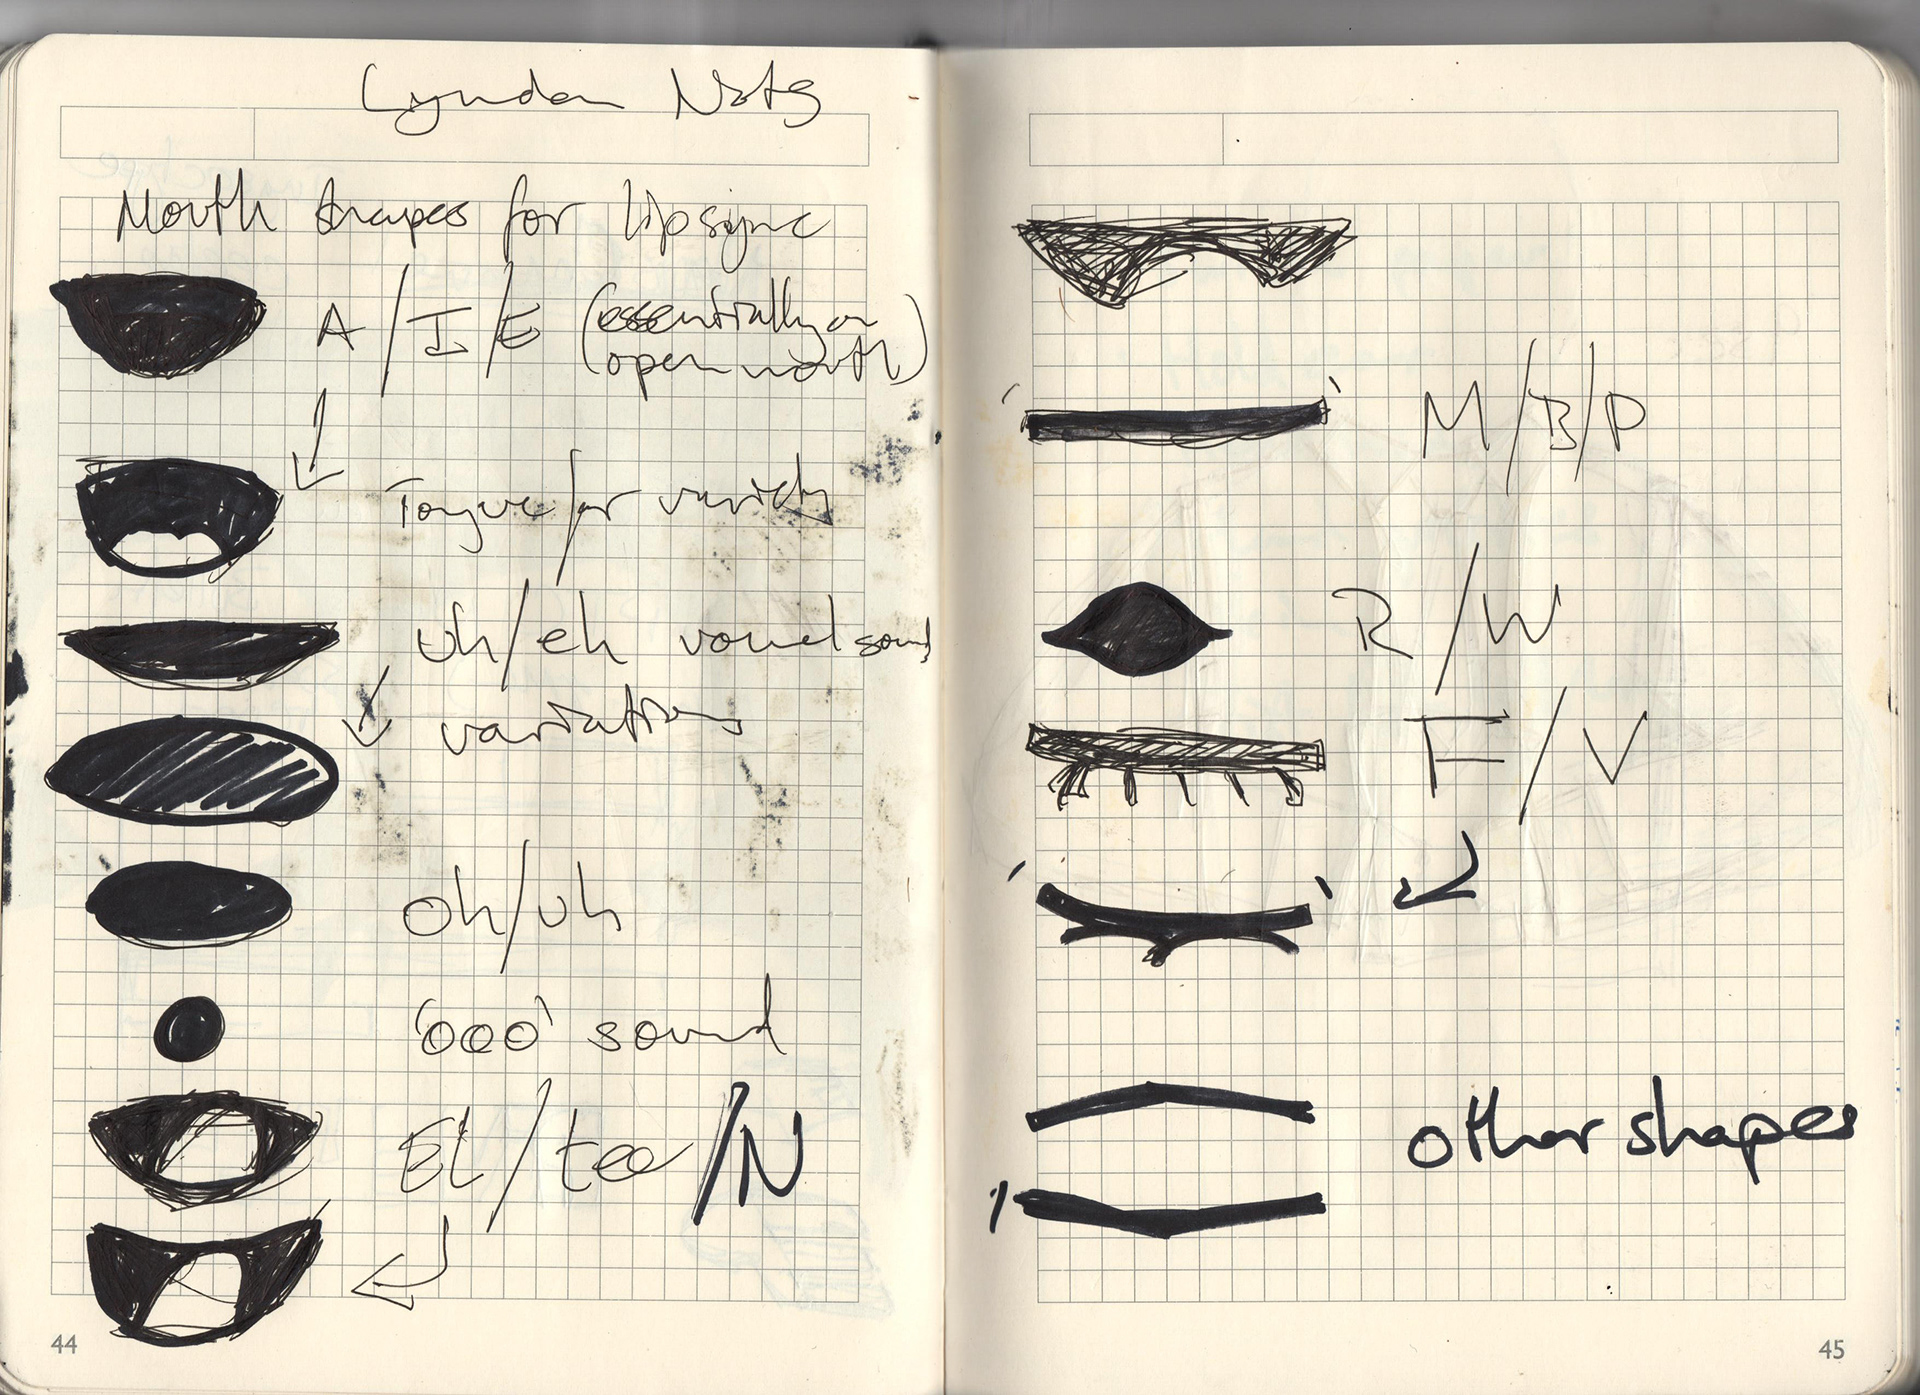 Lyndon Notes
Mouth shapes for lipsync
A/I/E (essentially an
open mouth)
Tongue/for variety
Uh/eh vowel sounds
variations
Oh/uh
'ooo' sound
El/tee/N
44
M/B/P
R/W
F/V
other shapes
45